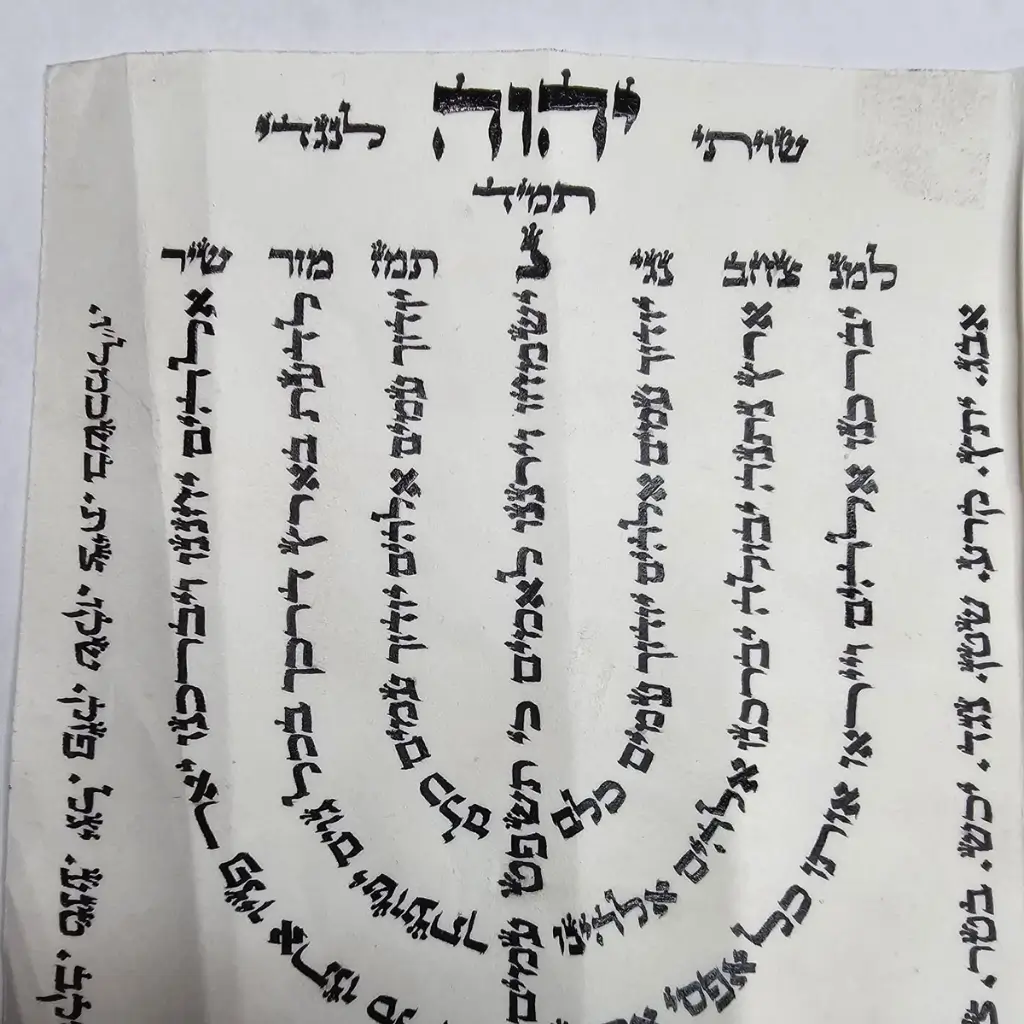 שויתי יהוה לנגדי
תמיד
למנ צחב נגי נ תמז מור שיר
אבג. יתץ. קרע. שטן. נגד. יכש. בטר.
יברכנו אלהים וייראו אותו כל אפסי
ארץ נתנה יבולה יברכנו אלהים אלהינו
יודוך עמים אלהים יודוך עמים כלם
ישמחו וירננו לאמים כי תשפט עמים
יודוך עמים אלהים יודוך עמים כלם
לדעת בארץ דרכך בכל גוים ישועתך
אלהים יחננו ויברכנו יאר פניו אתנו
טנע. יגל. פזק. שקו. צית. בשכמל"ו.